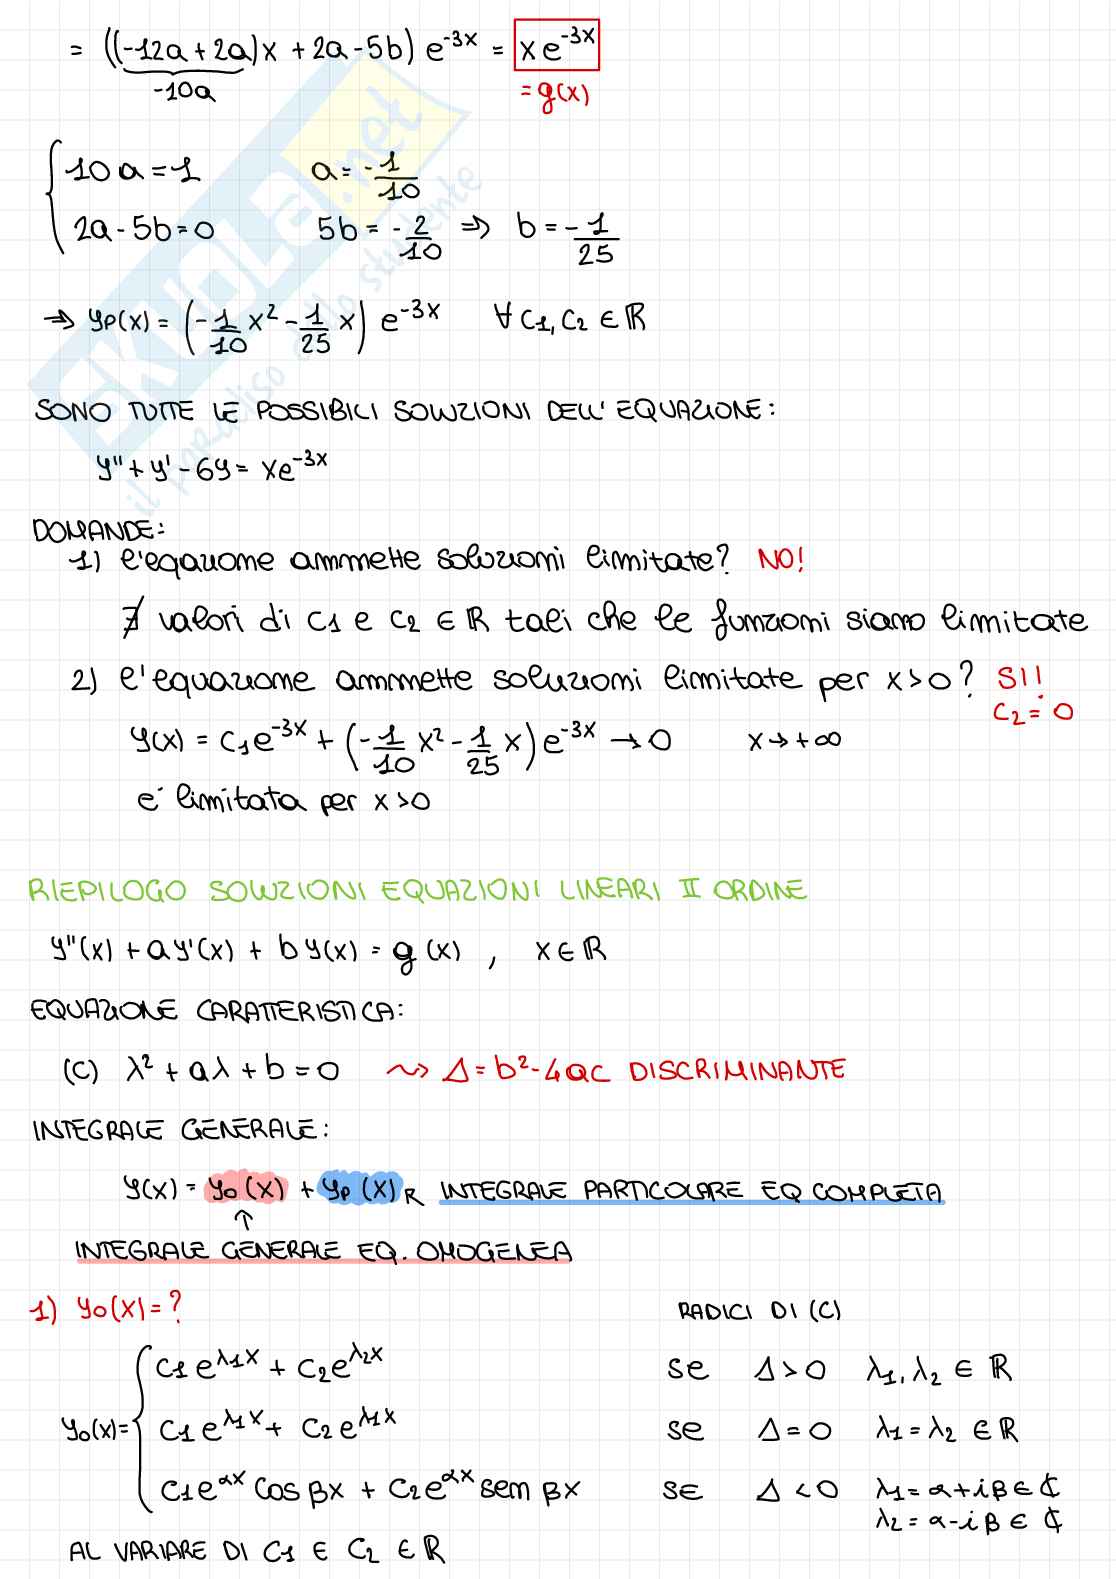 = ((-12a + 2a)x + 2a - 5b) e^{-3x} = x e^{-3x}
-10a
= g(x)
{ 10a = 1    a = -1/10
2a - 5b = 0    5b = -2/10 ⇒ b = -1/25
⇒ yp(x) = (-1/10 x² - 1/25 x) e^{-3x}    ∀ c1, c2 ∈ ℝ
SONO TUTTE LE POSSIBILI SOLUZIONI DELL'EQUAZIONE:
y'' + y' - 6y = xe^{-3x}
DOMANDE:
1) l'eqazione ammette soluzioni limitate? NO!
∄ valori di c1 e c2 ∈ ℝ tali che le funzioni siano limitate
2) l'equazione ammette soluzioni limitate per x>0? SI!!
c2 = 0
y(x) = c1e^{-3x} + (-1/10 x² - 1/25 x) e^{-3x} → 0    x → +∞
è limitata per x>0
RIEPILOGO SOLUZIONI EQUAZIONI LINEARI II ORDINE
y''(x) + ay'(x) + by(x) = g(x) , x ∈ ℝ
EQUAZIONE CARATTERISTICA:
(C) λ² + aλ + b = 0 ⇝ Δ = b² - 4ac DISCRIMINANTE
INTEGRALE GENERALE:
y(x) = y0(x) + yp(x) R INTEGRALE PARTICOLARE EQ COMPLETA
↑
INTEGRALE GENERALE EQ. OMOGENEA
1) y0(x) = ?    RADICI DI (C)
c1 e^{λ1x} + c2 e^{λ2x}    se Δ > 0    λ1, λ2 ∈ ℝ
y0(x) = { c1 e^{λ1x} + c2 e^{λ1x}    se Δ = 0    λ1 = λ2 ∈ ℝ
c1 e^{αx} cos βx + c2 e^{αx} sen βx    SE Δ < 0    λ1 = α + iβ ∈ ℂ
λ2 = α - iβ ∈ ℂ
AL VARIARE DI C1 E C2 ∈ ℝ
SKUOLA.net
il paradiso dello studente